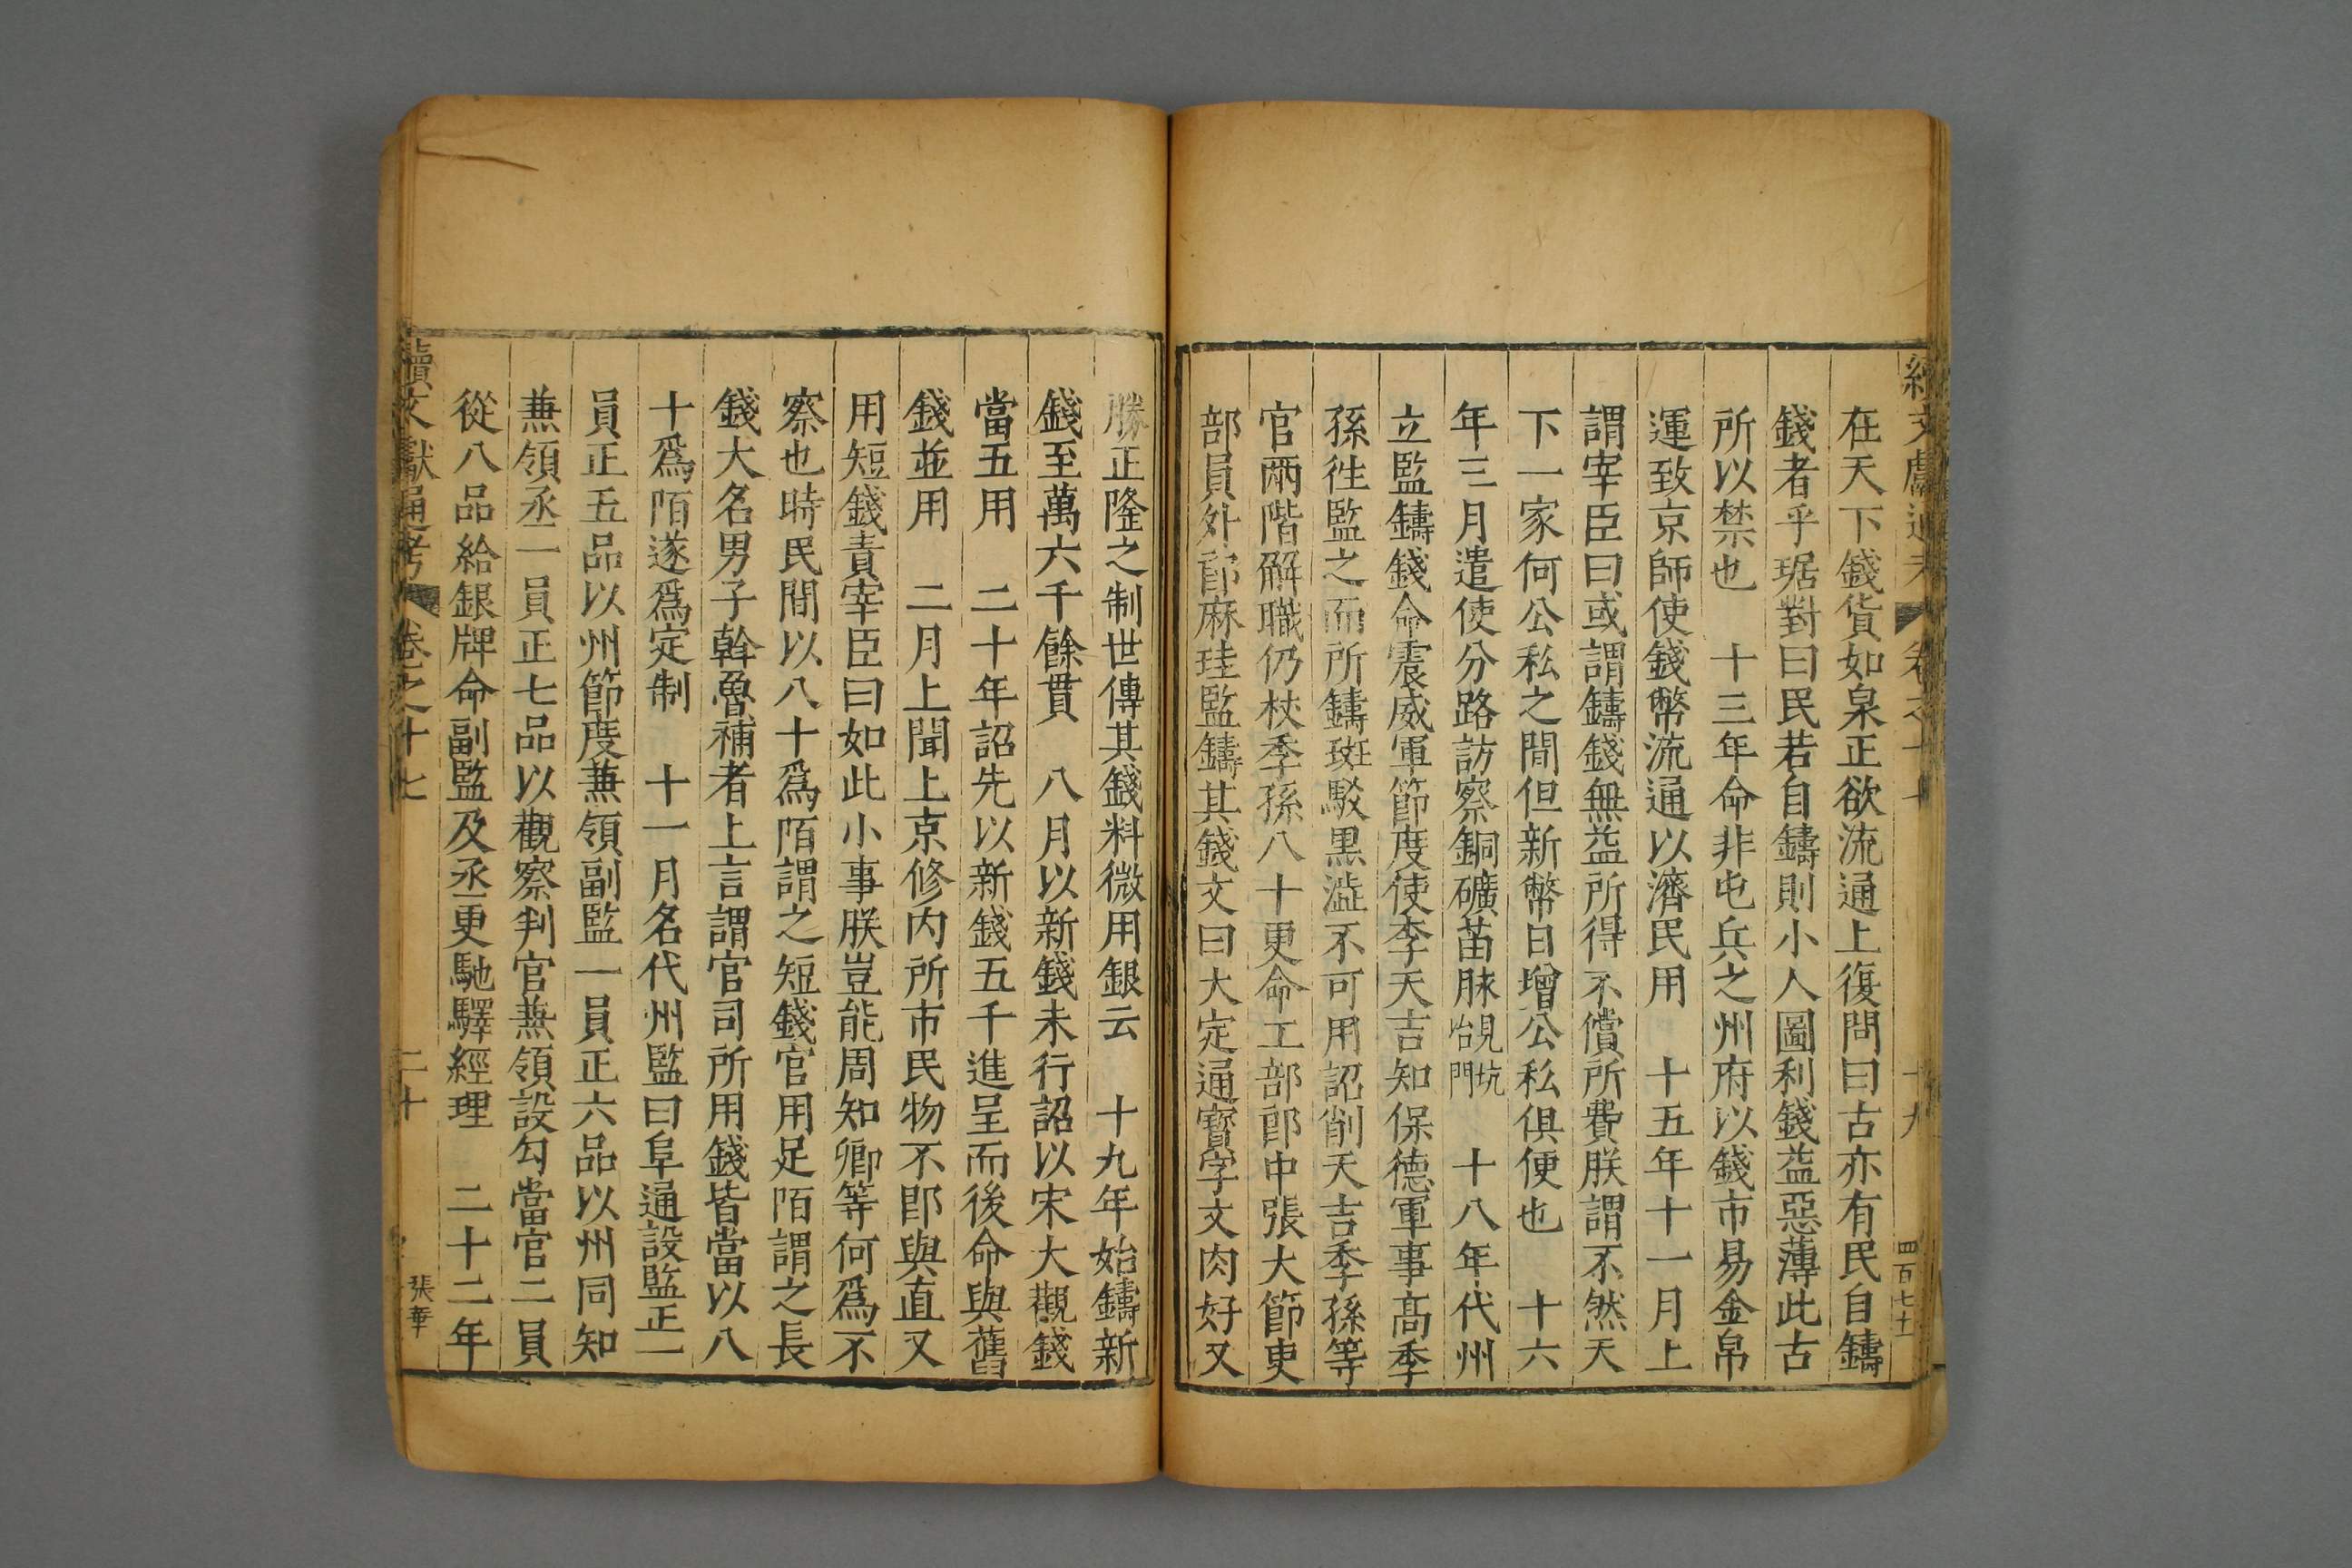 在天下錢貨如泉正欲流通上復問曰古亦有民自鑄
錢者乎琚對曰民若自鑄則小人圖利錢益惡薄此古
所以禁也　十三年命非屯兵之州府以錢市易金帛
運致京師使錢幣流通以濟民用　十五年十一月上
謂宰臣曰或謂鑄錢無益所得不償所費朕謂不然天
下一家何公私之間但新幣日增公私俱便也　十六
年三月遣使分路訪察銅礦苗脉冶見坑門　十八年代州
立監鑄錢命震威軍節度使李天吉知保德軍事髙季
孫徃監之而所鑄斑駁黒澁不可用詔削天吉季孫等
官兩階解職仍杖季孫八十更命工部郎中張大節吏
部員外郎麻珪監鑄其錢文曰大定通寳字文肉好又
四百七十
十九
勝正隆之制世傳其錢料微用銀云　十九年始鑄新
錢至萬六千餘貫　八月以新錢未行詔以宋大觀錢
當五用　二十年詔先以新錢五千進呈而後命與舊
錢並用　二月上聞上京修内所市民物不即與直又
用短錢責宰臣曰如此小事朕豈能周知卿等何爲不
察也時民間以八十爲陌謂之短錢官用足陌謂之長
錢大名男子斡魯補者上言謂官司所用錢皆當以八
十爲陌遂爲定制　十一月名代州監曰阜通設監正一
員正五品以州節度兼領副監一員正六品以州同知
兼領丞一員正七品以觀察判官兼領設勾當官二員
從八品給銀牌命副監及丞更馳驛經理　二十二年
續文獻通考　卷之十七
二十
張華